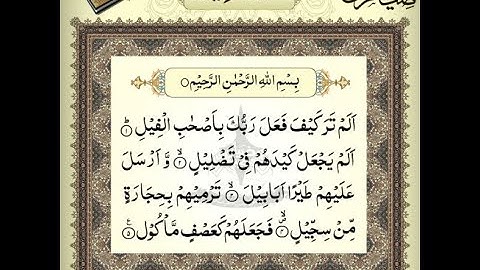 بِسْمِ اللهِ الرَّحْمٰنِ الرَّحِيْمِ
اَلَمْ تَرَ كَيْفَ فَعَلَ رَبُّكَ بِاَصْحٰبِ الْفِيْلِ ۝۱
اَلَمْ يَجْعَلْ كَيْدَهُمْ فِيْ تَضْلِيْلٍ ۝۲ وَّ اَرْسَلَ
عَلَيْهِمْ طَيْرًا اَبَابِيْلَ ۝۳ تَرْمِيْهِمْ بِحِجَارَةٍ
مِّنْ سِجِّيْلٍ ۝۴ فَجَعَلَهُمْ كَعَصْفٍ مَّاْكُوْلٍ ۝۵